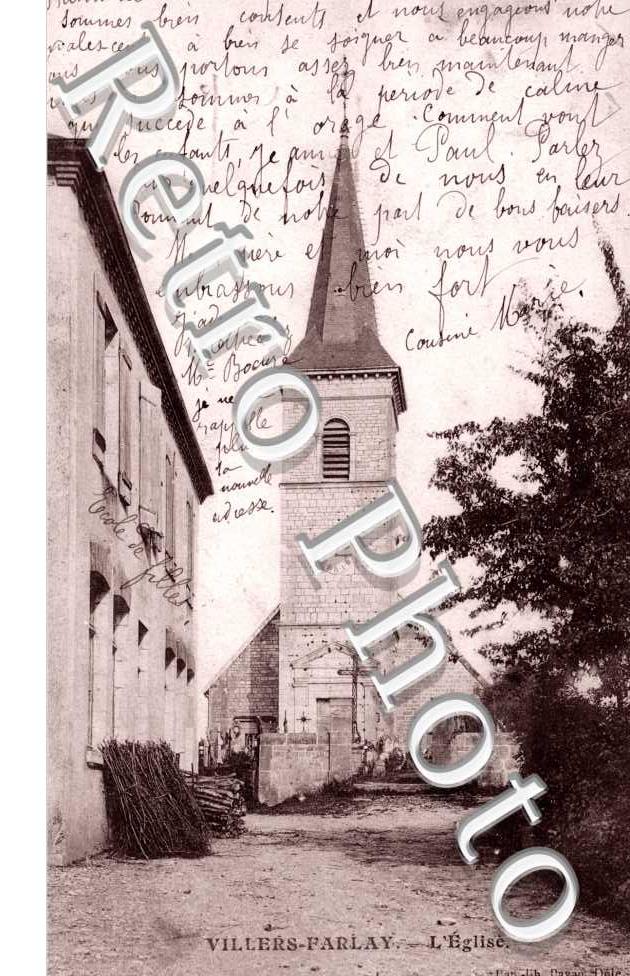 sommes bien contents et nous engageons notre
à bien se soigner a beaucoup manger
nous portons assez bien maintenant.
sommes à la periode de calme
qui succède à l' orage. Comment vont
les enfants, Jeanne et Paul. Parlez
quelquefois de nous en leur
donnant de notre part de bons baisers.
mère et moi nous vous
embrassons bien fort
Cousine Marie.
je ne
rappelle
plus
la
nouvelle
adresse.
École de filles
Retro Photo
VILLERS-FARLAY. — L'Église.